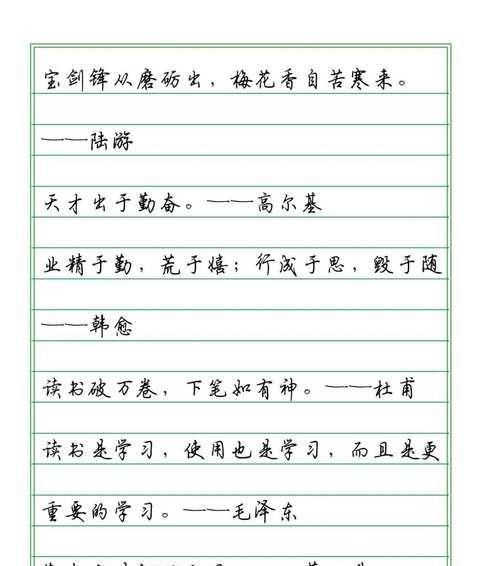 宝剑锋从磨砺出，梅花香自苦寒来。
——陆游
天才出于勤奋。——高尔基
业精于勤，荒于嬉；行成于思，毁于随
——韩愈
读书破万卷，下笔如有神。——杜甫
读书是学习，使用也是学习，而且是更
重要的学习。——毛泽东